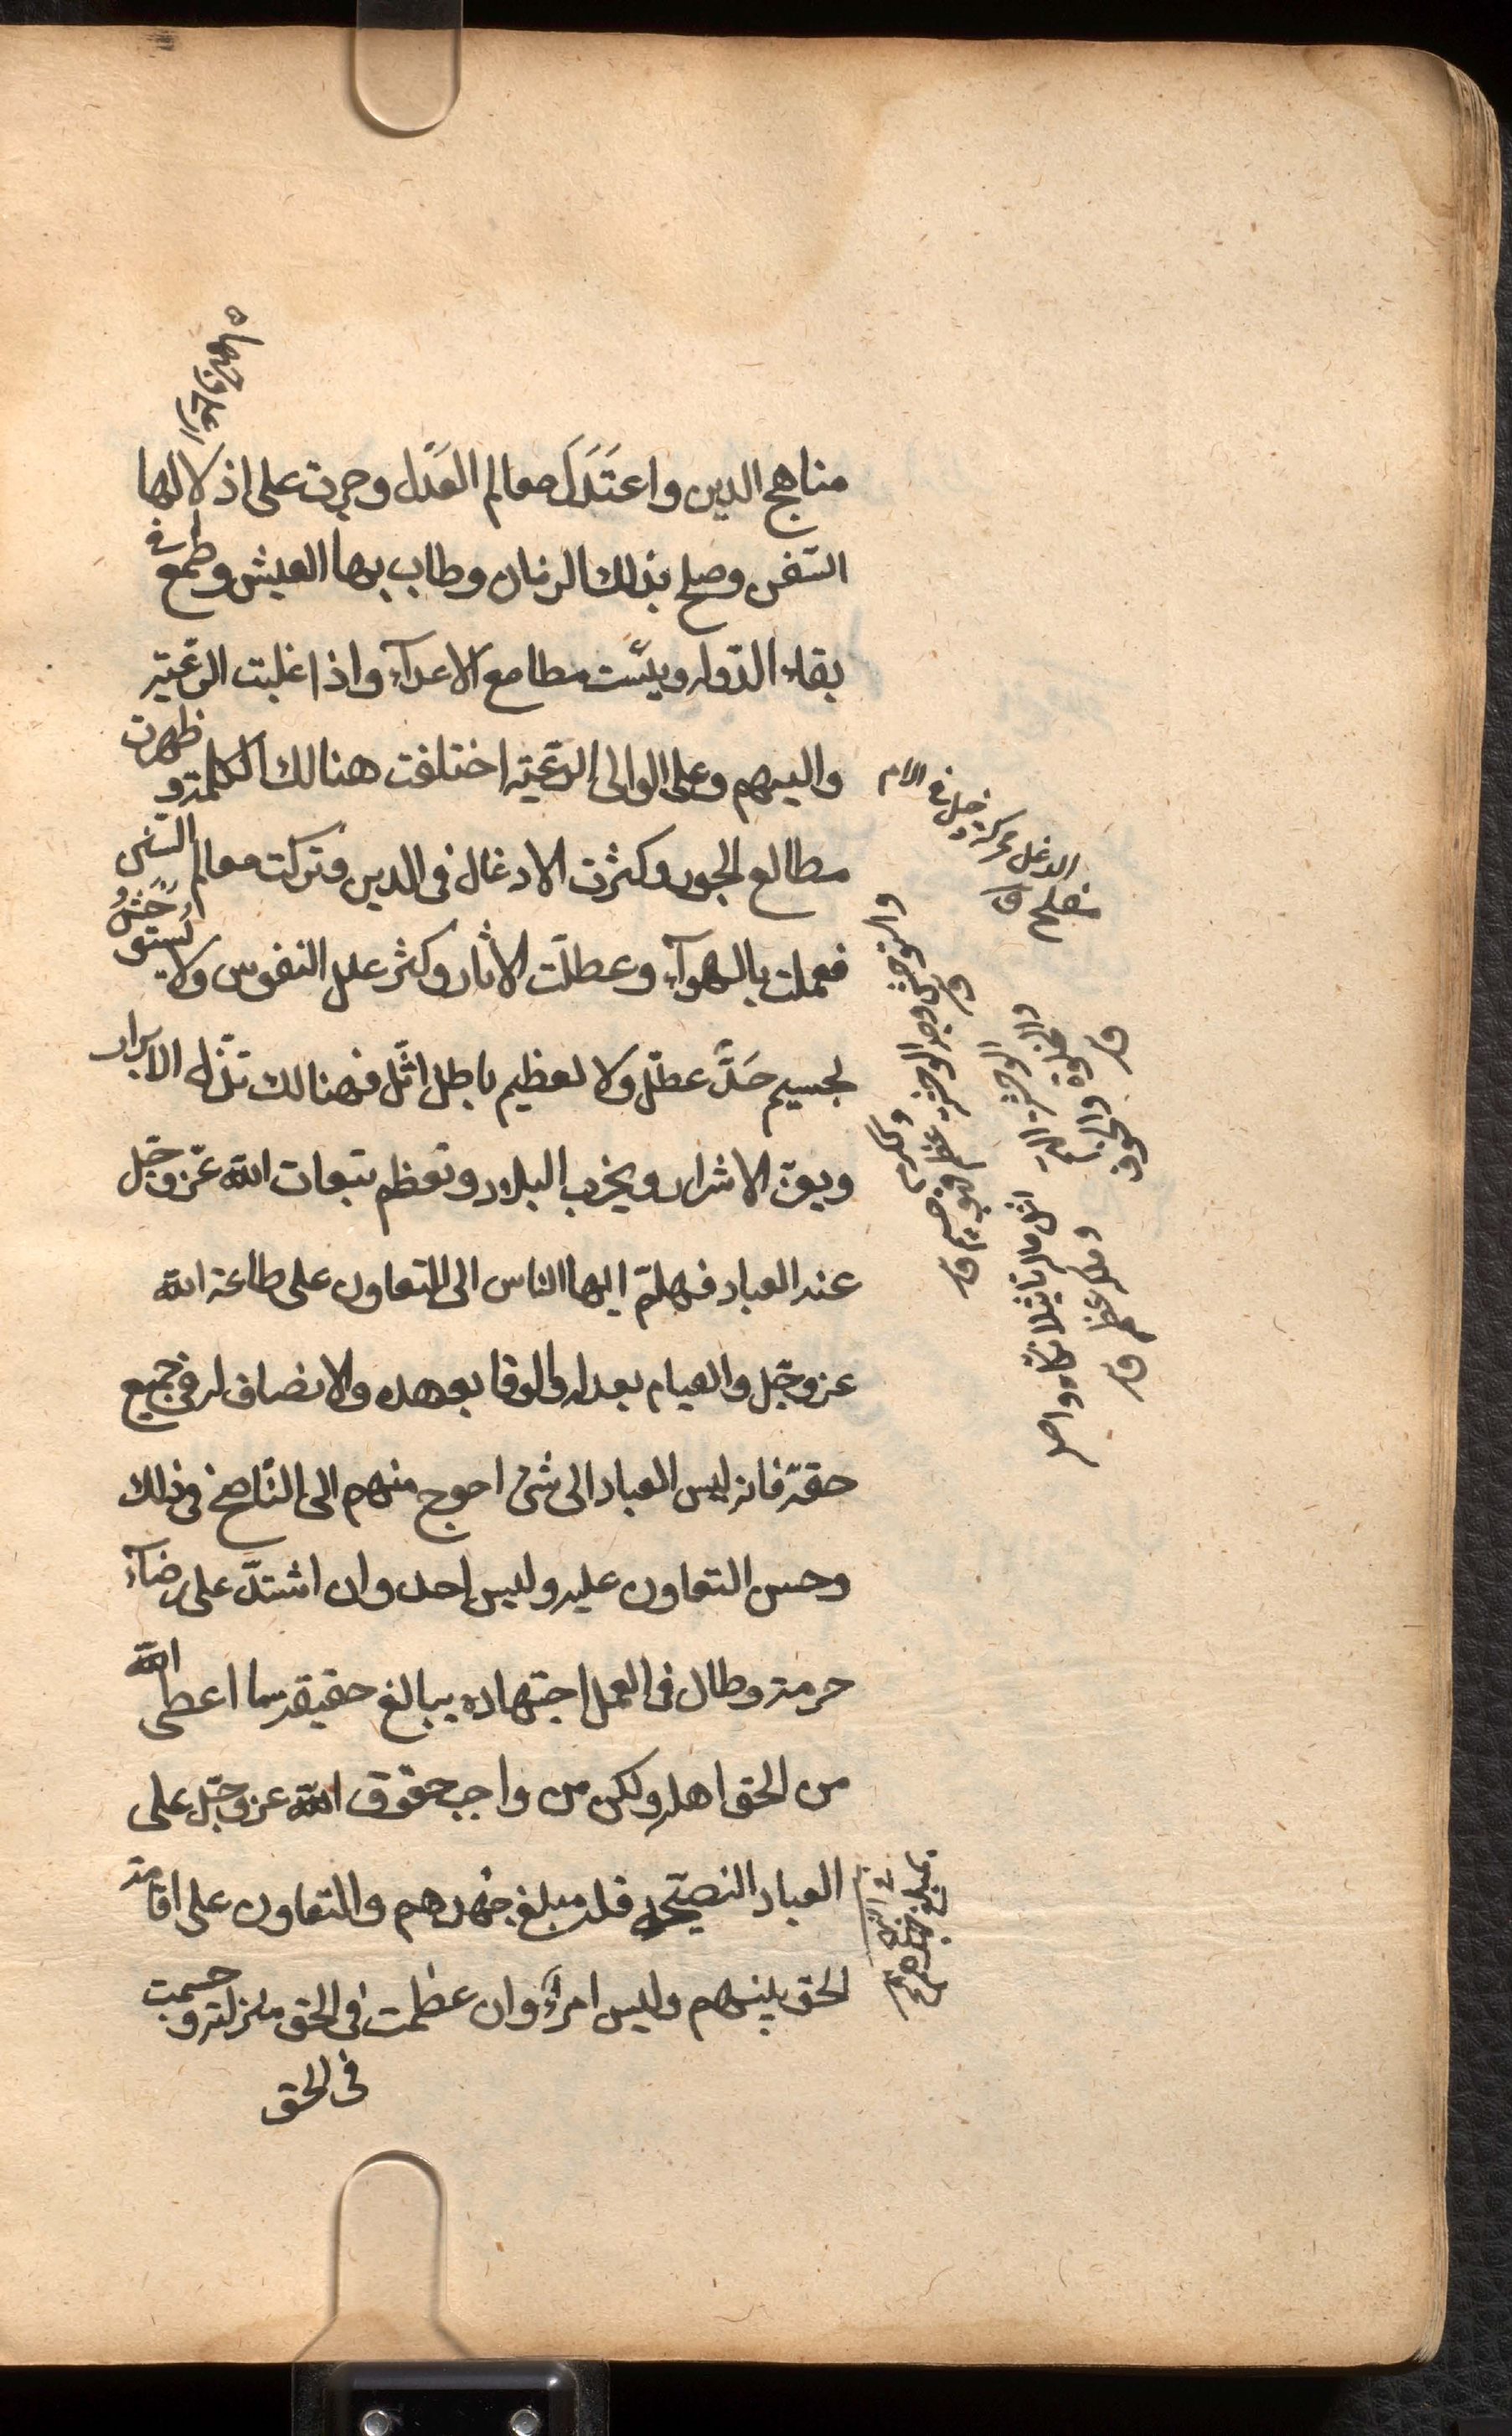 مناهج الدين واعتَدَلَ معالم العَدل وجرت على اذلالها
السّنن وصلح بذلك الزمان وطاب بها العيش وطمع في
بقاء الدّوله ويئست مطامع الاعدآء واذا غلبت الرّعيّة
واليهم وعلى الوالى الرّعيّة اختلفت هنالك الكلمة وظهرت
مطالع الجور وكثرت الادغال فى الدين وتركت معالم السّنن
فعملت بالهوآء وعطلّت الاثار وكثر علل النفوس ولا يستوحش
لجسيم حَدّ عطّل ولا لعظيم باطل اثّل فهنالك تذّل الابرار
ويعزّ الاشرار ويخرب البلاد وتعظم تبعات الله عزّ وجّل
عند العباد فهلمّ ايها الناس الى التعاون على طاعة الله
عز وجّل والقيام بعدله والوفا بعهده والانصاف له فى جميع
حقّه فانه ليس العباد الى شئ احوج منهم الى التّناصح فى ذلك
وحسن التعاون عليه وليس احد وان اشتدّ على رضآء
حرمته وطال فى العمل اجتهاده ببالغ حقيقة ما اعطى الله
من الحق اهله ولكن من واجب حقوق الله عز وجّل على
العباد النصيحة له مبلغ جهدهم والتعاون على اقامة
الحق بينهم وليس امرآء وان عظمت فى الحق منزلته وجسمت
فى الحق
الدغل محركة دخل فى الامر
مفسد ق
بمبلغ جهدهم